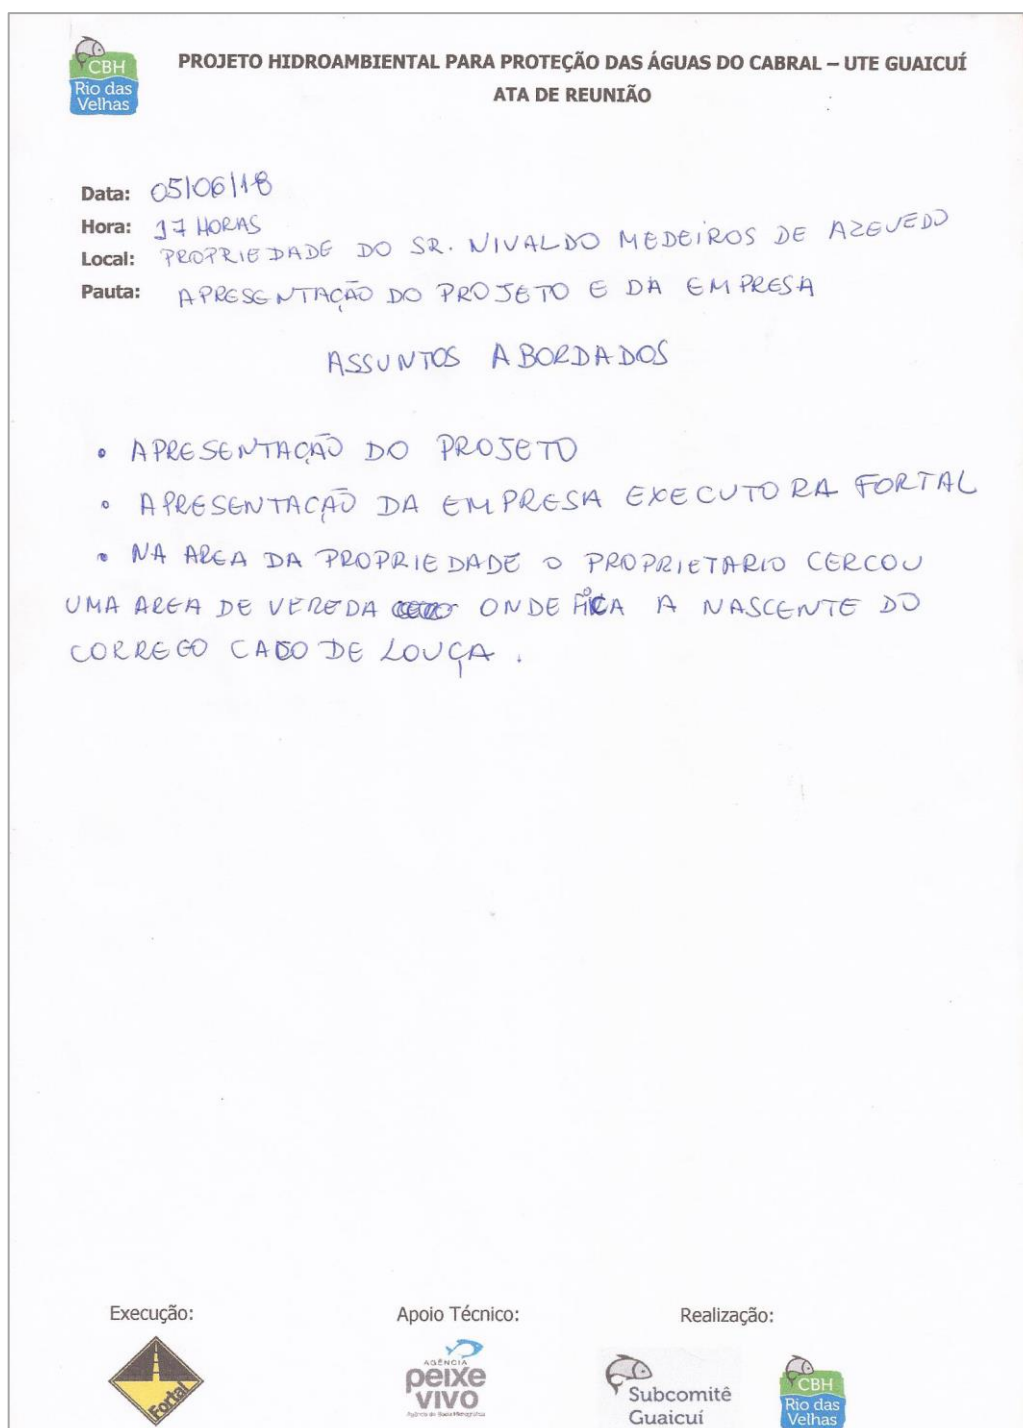 CBH
Rio das
Velhas
PROJETO HIDROAMBIENTAL PARA PROTEÇÃO DAS ÁGUAS DO CABRAL – UTE GUAICUÍ
ATA DE REUNIÃO
Data: 05/06/18
Hora: 17 HORAS
Local: PROPRIEDADE DO SR. NIVALDO MEDEIROS DE AZEVEDO
Pauta: APRESENTAÇÃO DO PROJETO E DA EMPRESA
ASSUNTOS ABORDADOS
• APRESENTAÇÃO DO PROJETO
• APRESENTAÇÃO DA EMPRESA EXECUTORA FORTAL
• NA AREA DA PROPRIEDADE O PROPRIETARIO CERCOU
UMA AREA DE VEREDA ONDE FICA A NASCENTE DO
CORREGO CABO DE LOUÇA.
Execução:
Apoio Técnico:
Realização:
Fortal
AGÊNCIA
peixe
vivo
Subcomitê
Guaicuí
CBH
Rio das
Velhas